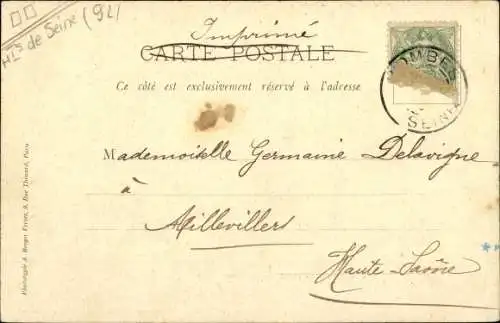 Hts de Seine (92)
Imprimé
CARTE POSTALE
Ce côté est exclusivement réservé à l'adresse
COLOMBES
SEINE
Mademoiselle Germaine Delavigne
à
Millevillers
Haute-Saône
Phototypie A. Berger Frères, 9, Rue Thénard, Paris